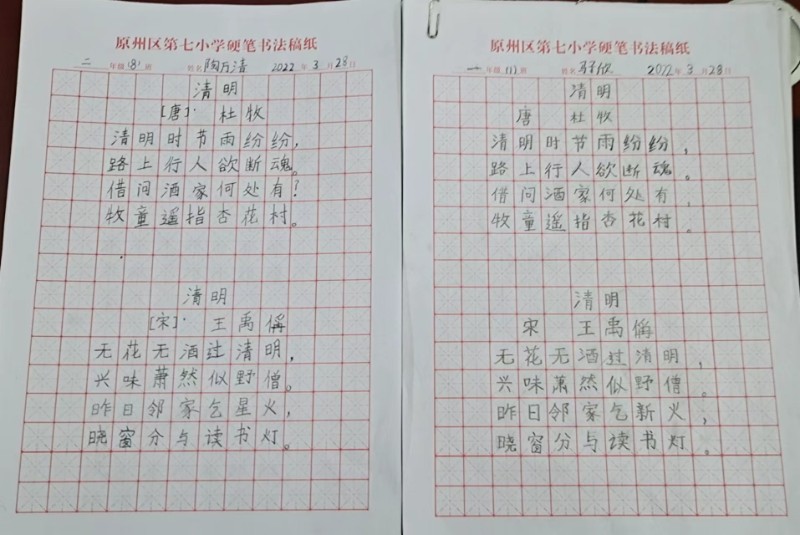 原州区第七小学硬笔书法稿纸
二年级(8)班 姓名 2022年3月28日
清明
[唐]· 杜牧
清明时节雨纷纷，
路上行人欲断魂。
借问酒家何处有？
牧童遥指杏花村。
清明
[宋]· 王禹偁
无花无酒过清明，
兴味萧然似野僧。
昨日邻家乞星火，
晓窗分与读书灯。
原州区第七小学硬笔书法稿纸
一年级(1)班 姓名 2022年3月28日
清明
唐 杜牧
清明时节雨纷纷，
路上行人欲断魂。
借问酒家何处有，
牧童遥指杏花村。
清明
宋 王禹偁
无花无酒过清明，
兴味萧然似野僧。
昨日邻家乞新火，
晓窗分与读书灯。